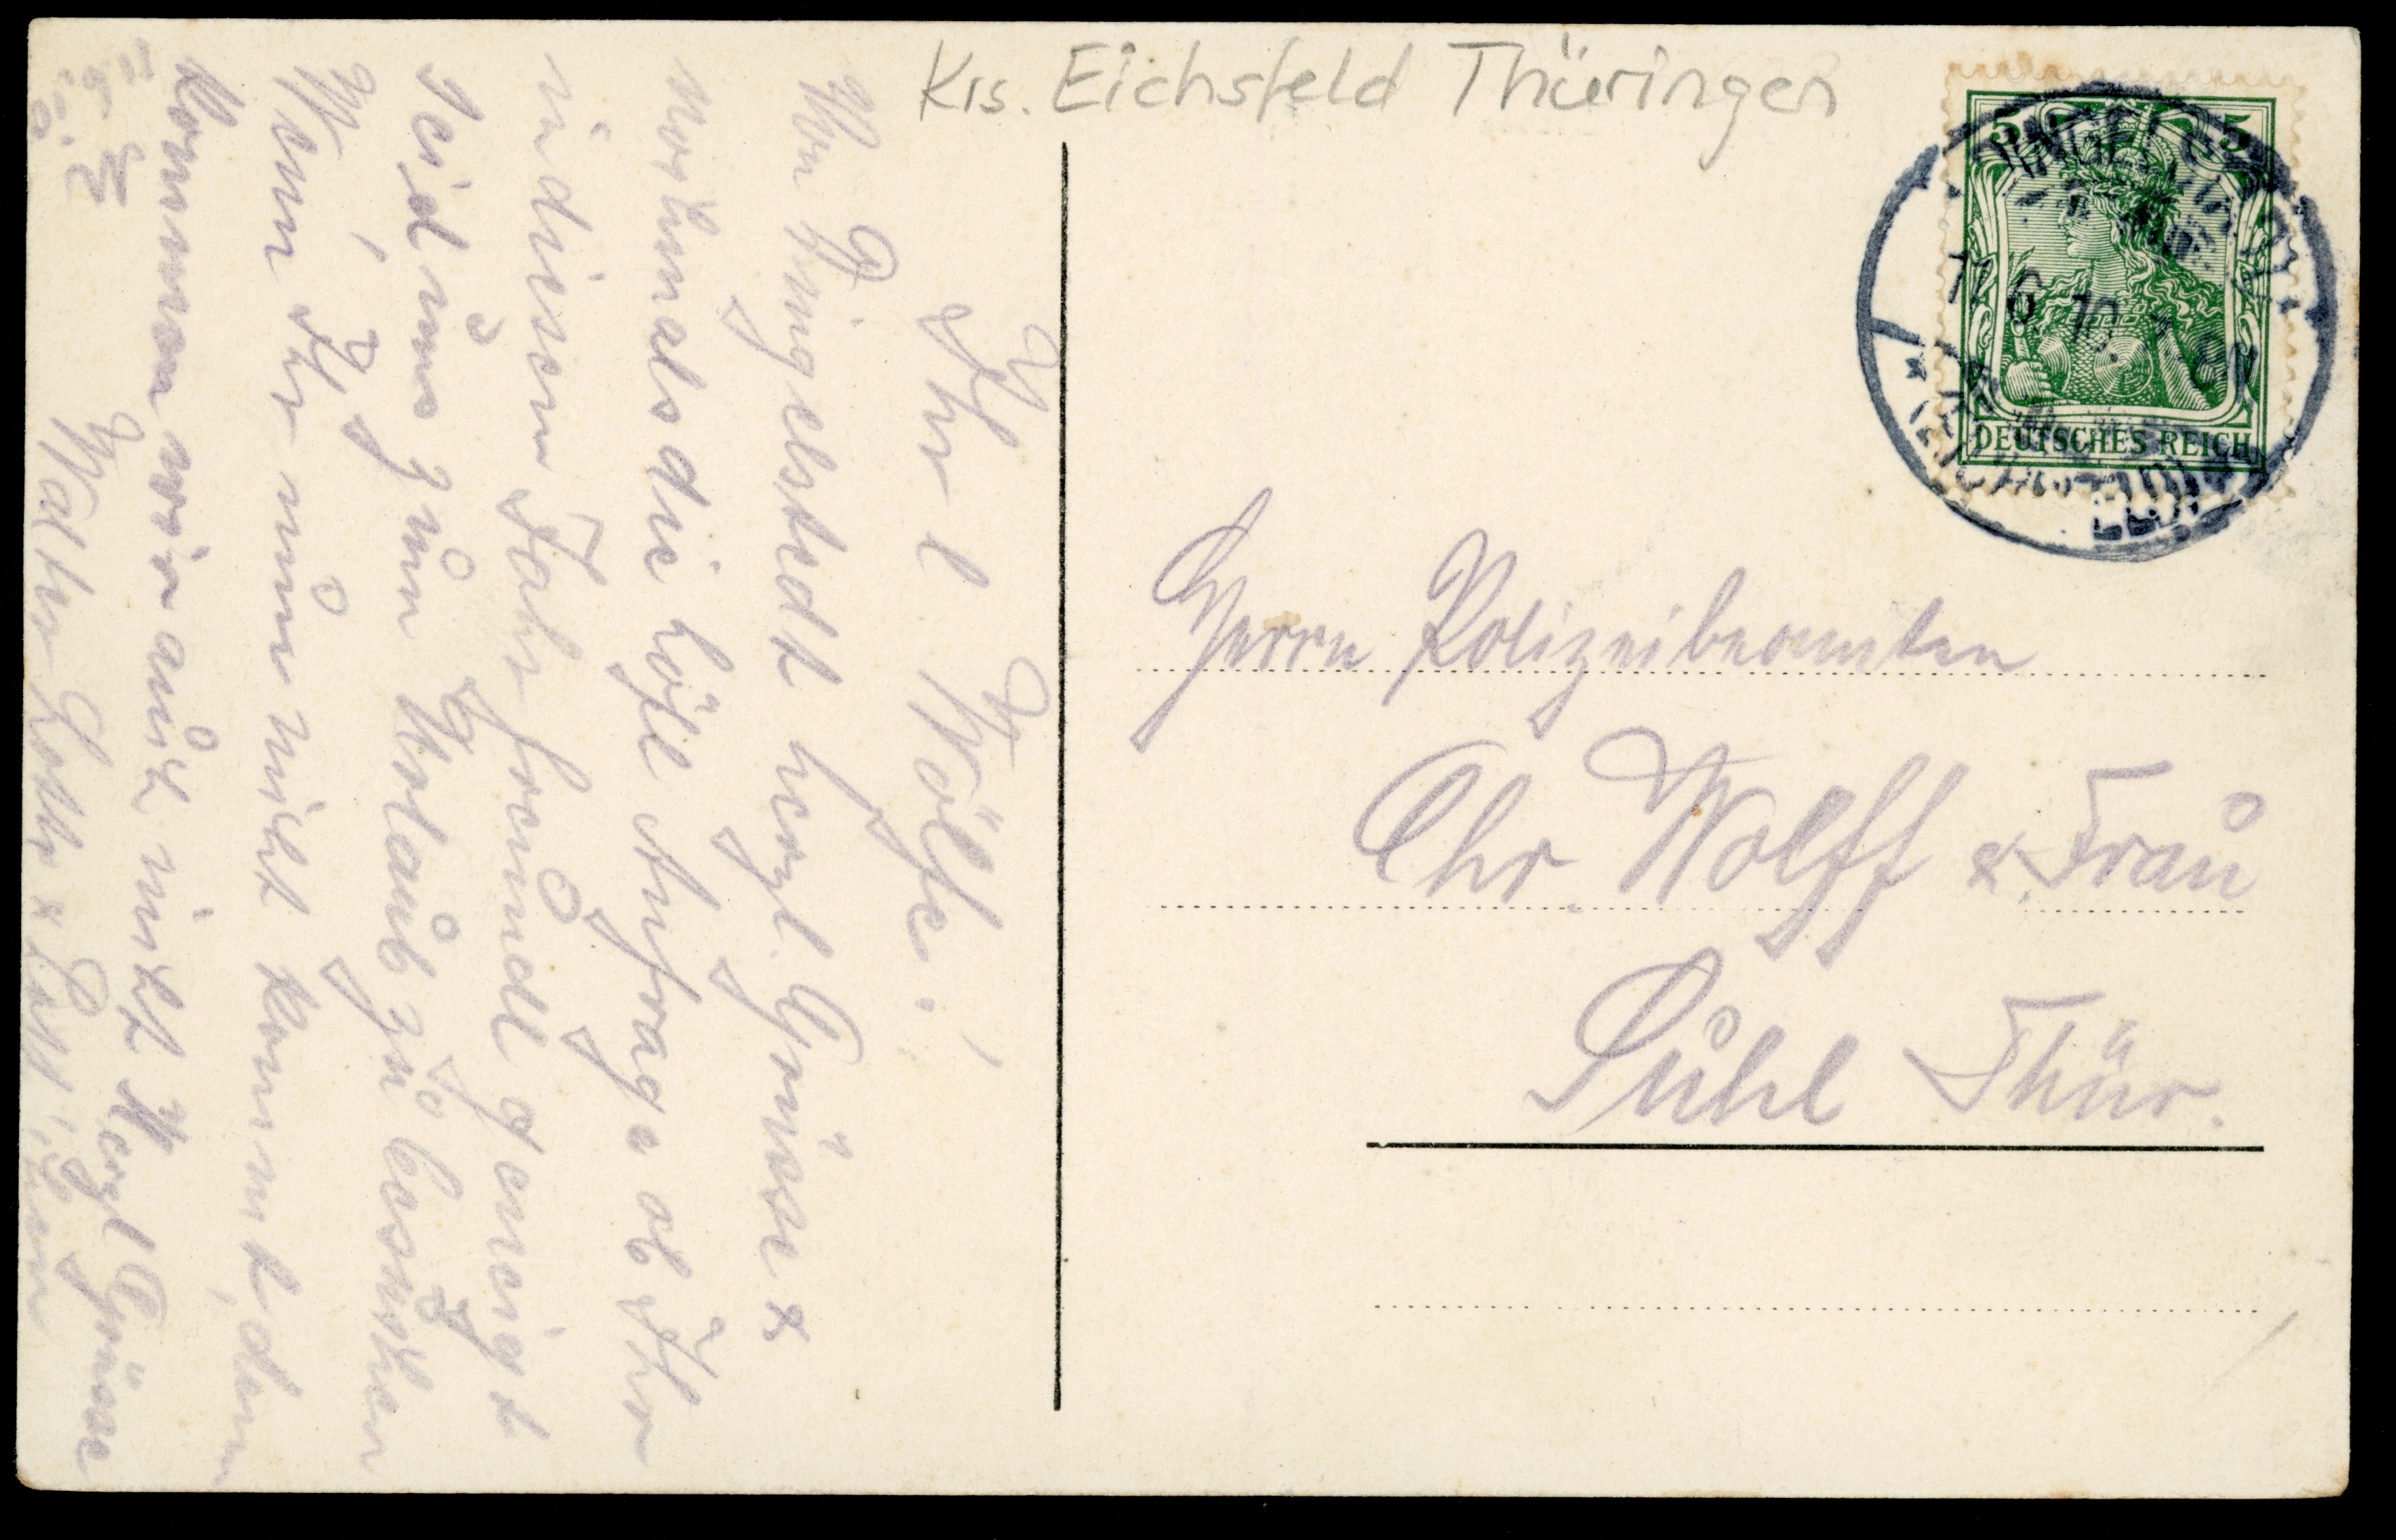 Krs. Eichsfeld Thüringen
5 5
DINGELSTÄDT
11.6.10. 7-8N
* (EICHSFELD) *
DEUTSCHES REICH
Herrn Polizeibeamten
Chr. Wolff & Frau
Suhl Thür.
Ihr l. Wölfe!
Von Dingelstedt herzl. Grüsse &
nochmals die höfl. Anfrage ob Ihr
in diesem Jahr freundl. geneigt
seid uns zum Urlaub zu besuchen
Wenn Ihr nun nicht kommt, dann
kommen wir auch nicht Herzl Grüsse
Walter Lotte &